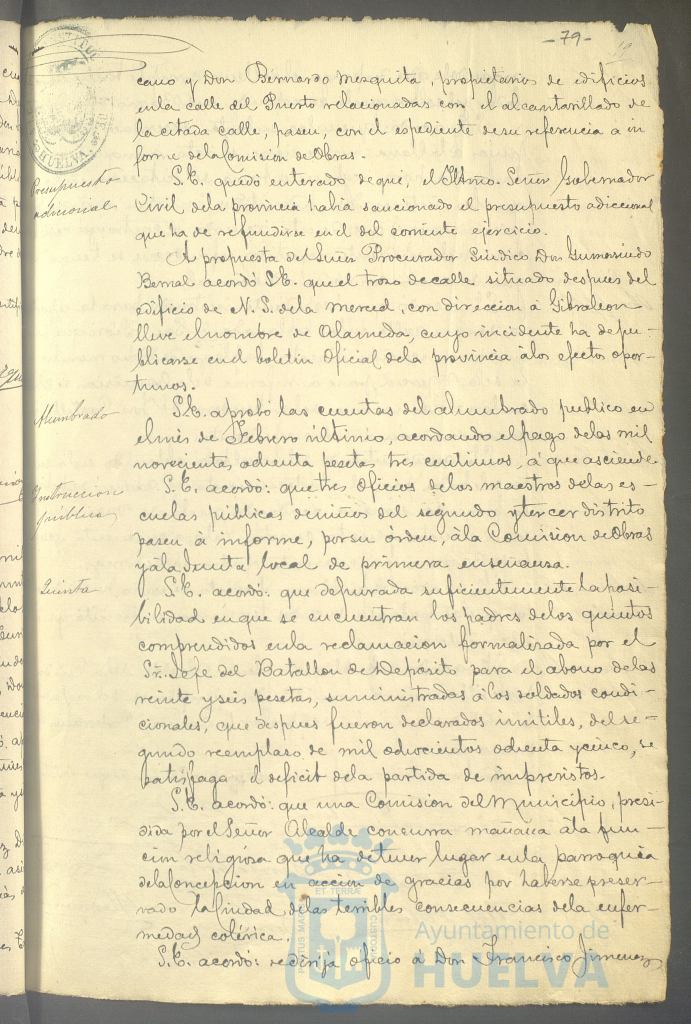 -79-
cano y Don Bernardo Mezquita, propietarios de edificios
en la calle del Puerto relacionadas con el alcantarillado de
la citada calle, pasen, con el espediente de su referencia a in
forme de la Comision de Obras.
Presupuesto
adicional
S.E. quedó enterado de que, el Iltmo. Señor Gobernador
Civil de la provincia habia sancionado el presupuesto adiccional
que ha de refundirse en el del corriente ejercicio.
A propuesta del Señor Procurador Sindico Don Gumersindo
Bernal acordó S.E. que el trozo de calle situado despues del
edificio de N. S. de la Merced, con direccion á Gibraleon
lleve el nombre de Alameda, cuyo incidente ha de pu-
blicarse en el boletin Oficial de la provincia á los efectos opor-
tunos.
Alumbrado
S.E. aprobó las cuentas del alumbrado publico en
el mes de Febrero último, acordando el pago de las mil
novecientas ochenta pesetas tres centimos, á que asciende.
Instruccion
publica
S.E. acordó: que tres oficios de los maestros de las es-
cuelas publicas de niños del segundo y tercer distrito
pasen á informe, por su órden, á la Comision de Obras
y á la Junta local de primera enseñanza.
Quinta
S.E. acordó: que depurada suficientemente la posi-
bilidad en que se encuentran los padres de los quintos
comprendidos en la reclamacion formalizada por el
Sr. Jefe del Batallon de Depósito para el abono de las
veinte y seis pesetas, suministradas á los soldados condi-
cionales, que despues fueron declarados inutiles, del se-
gundo reemplazo de mil ochocientos ochenta y cinco, se
satisfaga el deficit de la partida de imprevistos.
S.E. acordó: que una Comision del Municipio, presi-
dida por el Señor Alcalde concurra mañana á la fun-
cion religiosa que ha de tener lugar en la parroquia
de la Concepcion en accion de gracias por haberse preser-
vado la Ciudad de las terribles consecuencias de la enfer-
medad colérica.
S.E. acordó: se dirija oficio á Don Francisco Jimenez
HUELVA
Ayuntamiento de
HUELVA